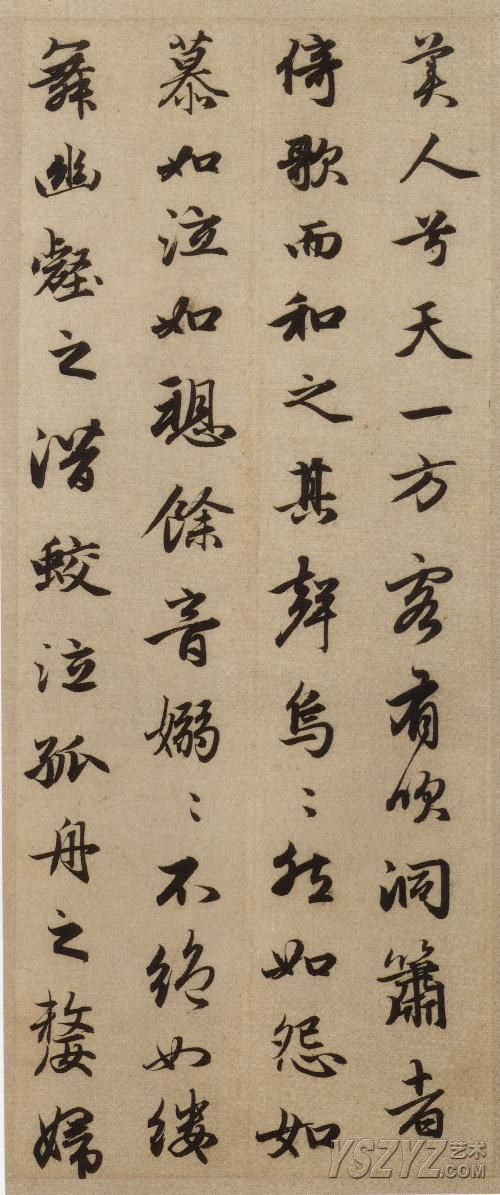 美人兮天一方客有吹洞簫者
倚歌而和之其聲烏〻然如怨如
慕如泣如愬餘音嫋〻不絕如縷
舞幽壑之潛蛟泣孤舟之嫠婦
YSZYZ艺术.COM